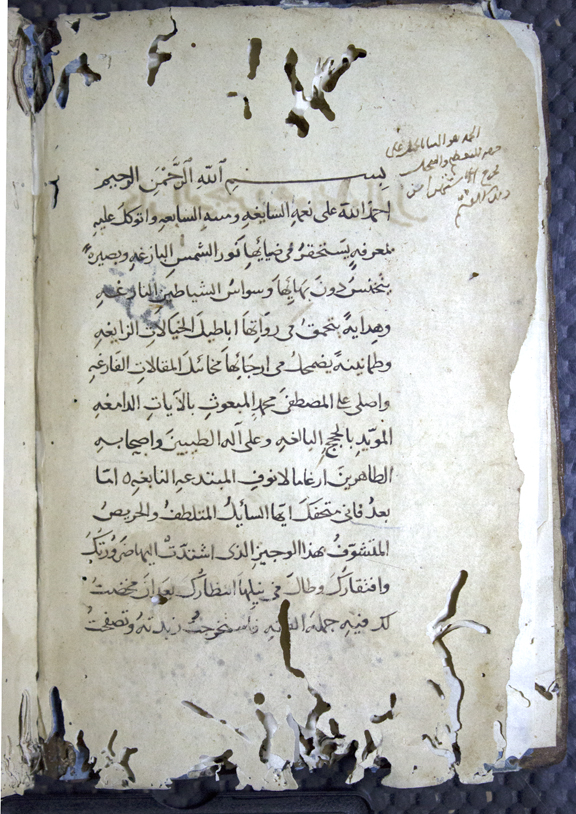 بسم الله الرحمن الرحيم
احمد الله على نعمه السابغه ومننه السايغه واتوكل عليه
بمعرفه يستحقر في ضيائها نور الشمس البازغه وبصيرة
ينخنس دون بهائها وسواس الشياطين النازغه
وهداية يتمحق في روائها اباطيل الخيالات الزايغه
وطمانينة يضمحل في ارجائها مخائل المقالات الفارغه
واصلي على المصطفى محمد المبعوث بالآيات الدامغه
المويد بالحجج البالغه وعلى آله الطيبين واصحابه
الطاهرين ارغاما لانوف المبتدعه النابغه اما
بعد فاني متحفك ايها السايل المتلطف والحريص
المتشوف بهذا الوجيز الذي اشتدت اليها ضرورتك
وافتقارك وطال في نيلها انتظارك بعد ان مخضت
لك فيه جملة الفقه فاستخرجت زبدته وتصفحت